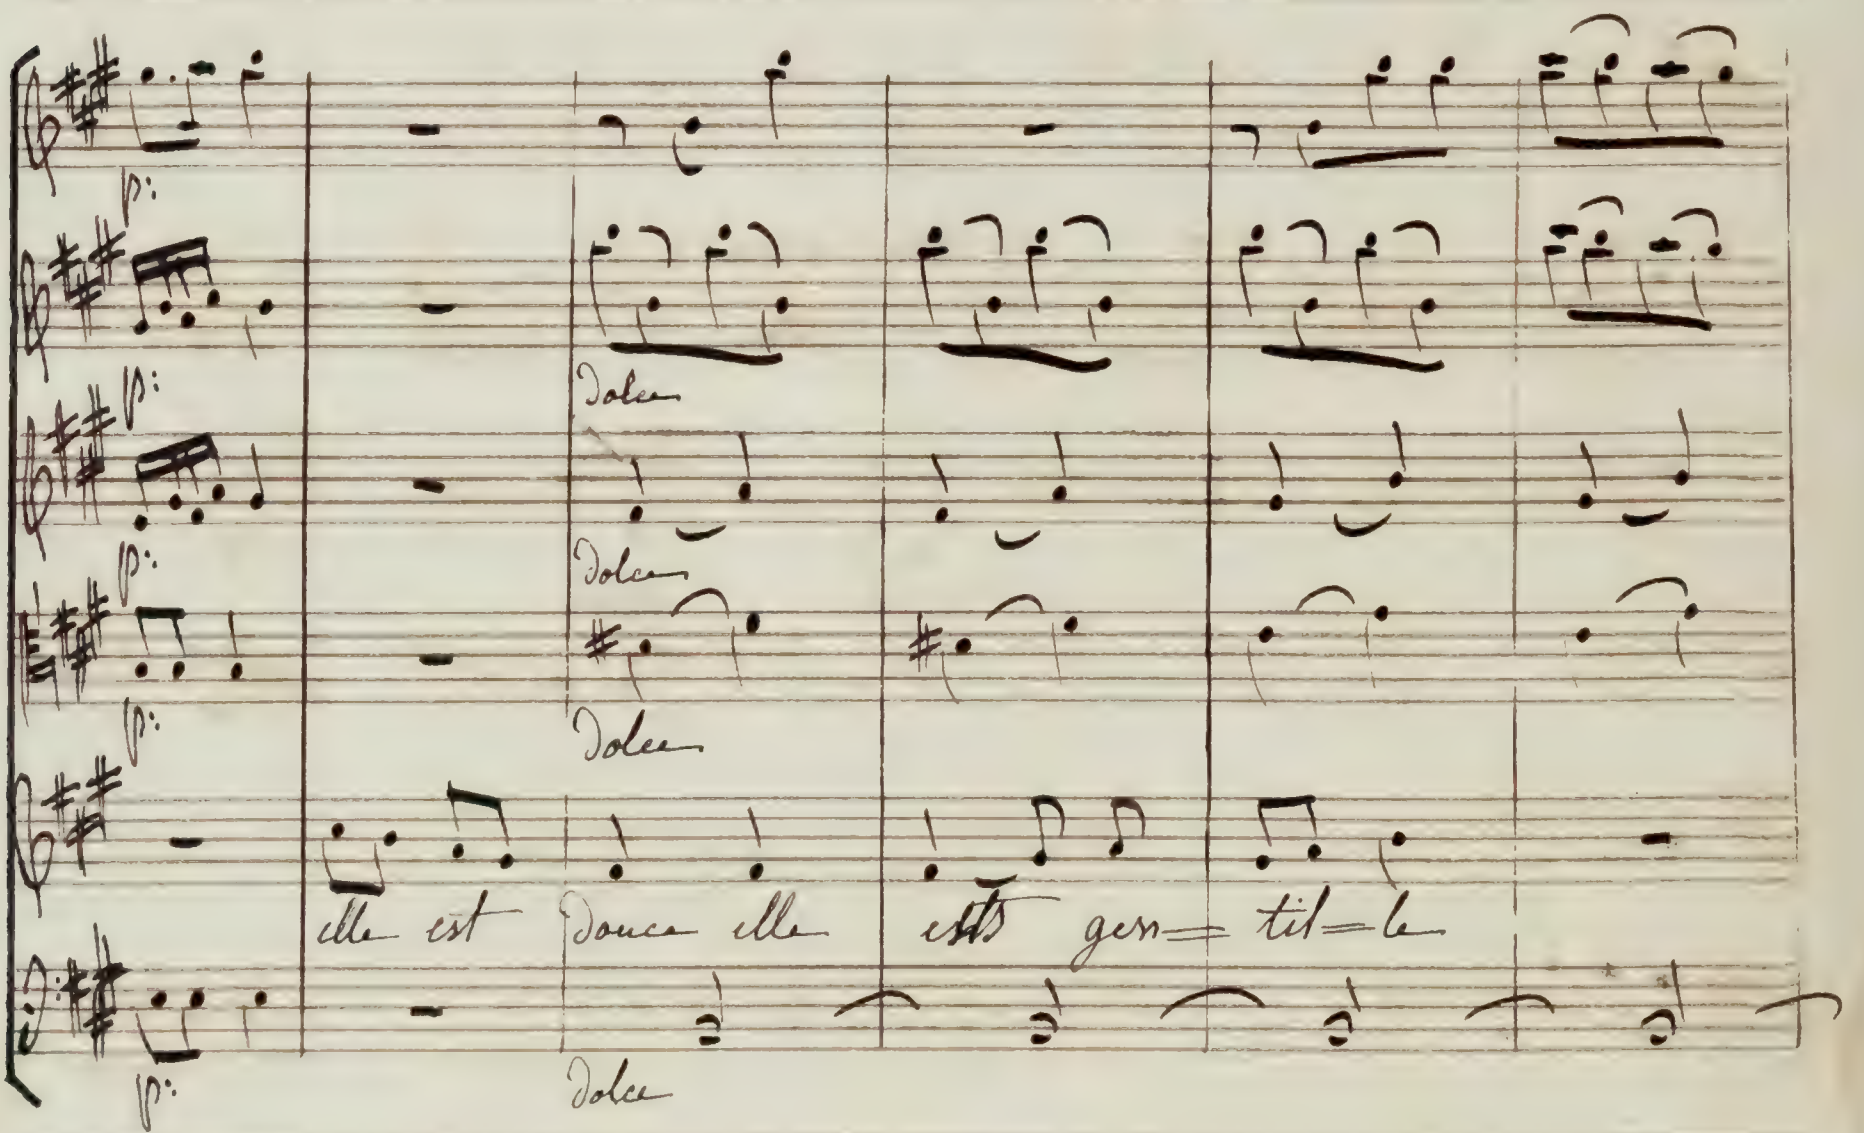 p:
p:
Dolce
p:
Dolce
p:
Dolce
elle est Douce elle est gen= til=le
p:
Dolce